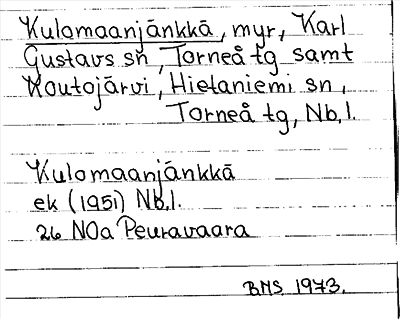 Kulomaanjänkkä, myr, Karl
Gustavs sn, Torneå tg samt
Koutojärvi, Hietaniemi sn,
Torneå tg, Nb.l.
Kulomaanjänkkä
ek (1951) Nb.l.
26 NOa Peuravaara
BMS 1973.